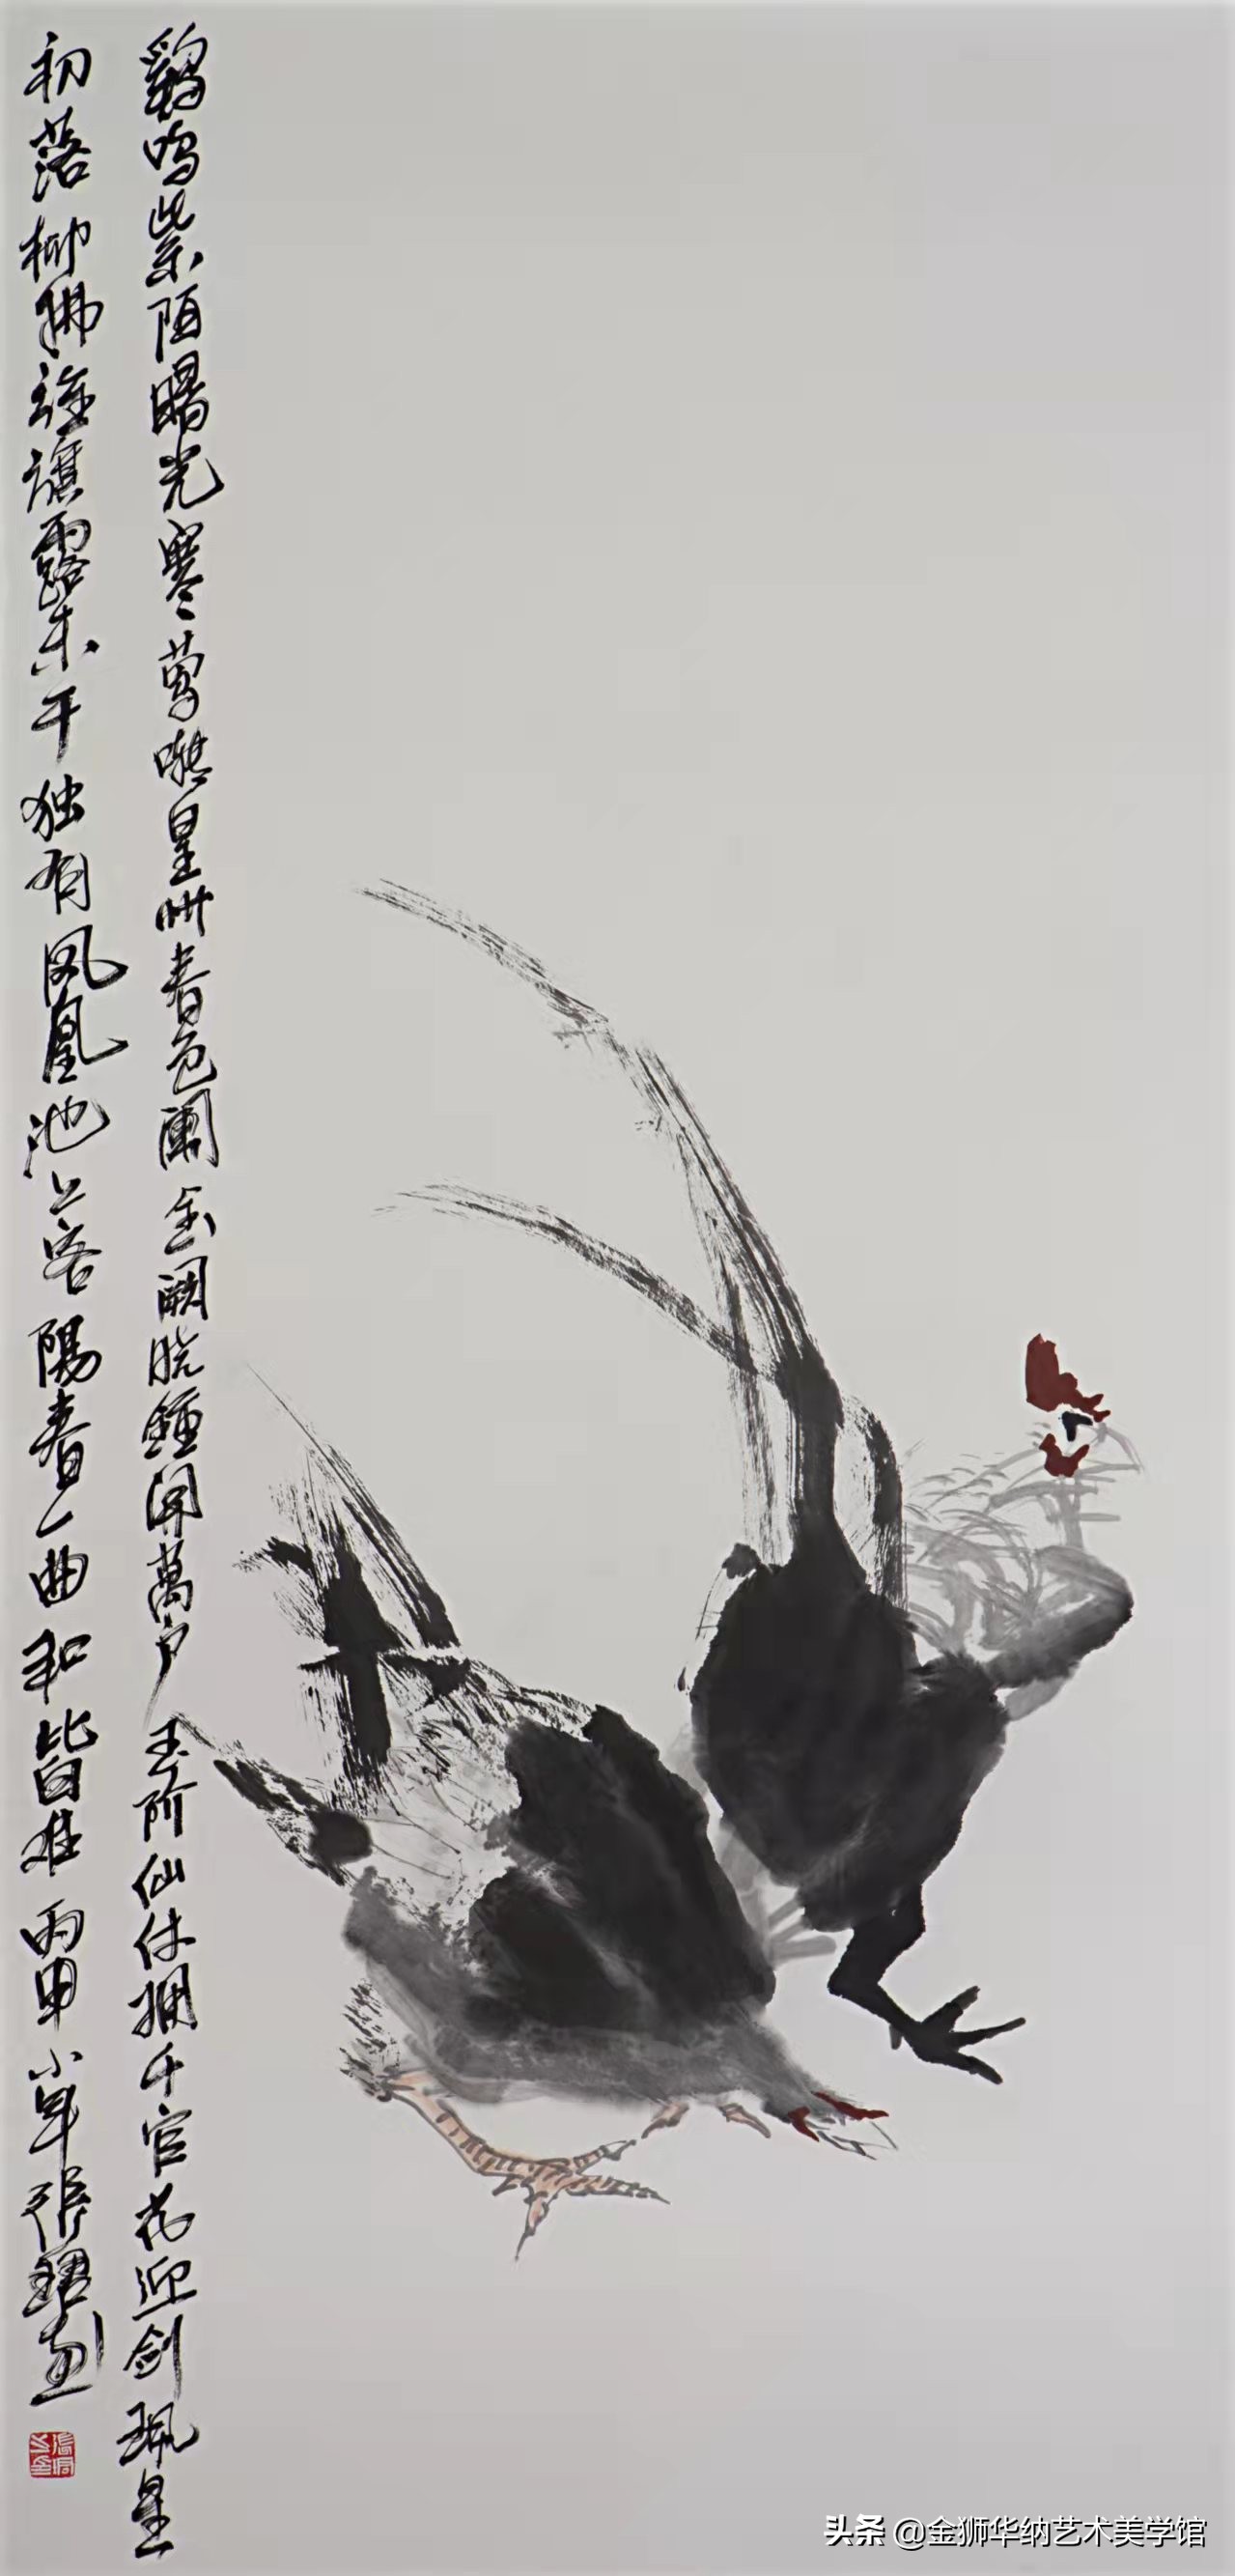 鷄鸣紫陌曙光寒莺啭皇州春色闌金闕晓鐘開萬户玉阶仙仗拥千官花迎剑珮星
初落柳拂旌旗露未干独有凤凰池上客陽春一曲和皆难丙申小年張画
头条 @金狮华纳艺术美学馆